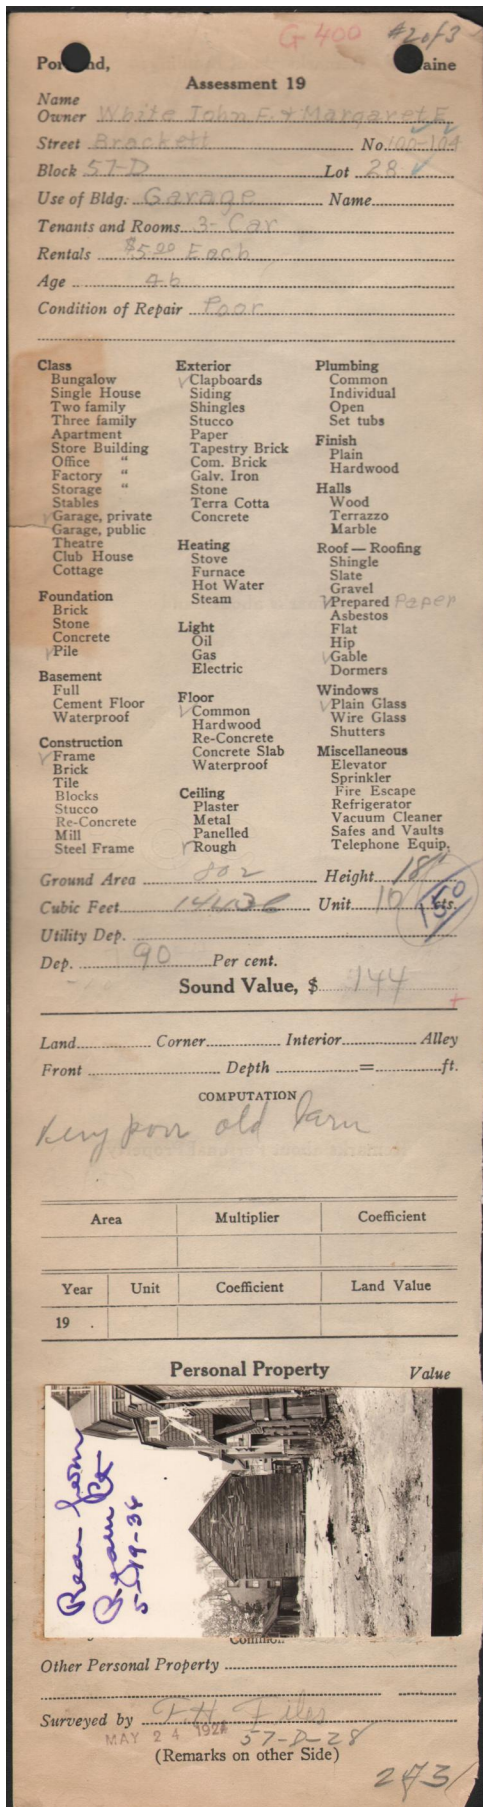 G 400 #2 of 3
Portland, Maine
Assessment 19
Name
Owner White John E. & Margaret E
Street Brackett No. 100-104
Block 57-D Lot 28
Use of Bldg. Garage Name
Tenants and Rooms 3- Car
Rentals $5.00 Each
Age 46
Condition of Repair Poor
Class
Bungalow
Single House
Two family
Three family
Apartment
Store Building
Office "
Factory "
Storage "
Stables
Garage, private
Garage, public
Theatre
Club House
Cottage
Foundation
Brick
Stone
Concrete
Pile
Basement
Full
Cement Floor
Waterproof
Construction
Frame
Brick
Tile
Blocks
Stucco
Re-Concrete
Mill
Steel Frame
Exterior
Clapboards
Siding
Shingles
Stucco
Paper
Tapestry Brick
Com. Brick
Galv. Iron
Stone
Terra Cotta
Concrete
Heating
Stove
Furnace
Hot Water
Steam
Light
Oil
Gas
Electric
Floor
Common
Hardwood
Re-Concrete
Concrete Slab
Waterproof
Ceiling
Plaster
Metal
Panelled
Rough
Plumbing
Common
Individual
Open
Set tubs
Finish
Plain
Hardwood
Halls
Wood
Terrazzo
Marble
Roof — Roofing
Shingle
Slate
Gravel
Prepared Paper
Asbestos
Flat
Hip
Gable
Dormers
Windows
Plain Glass
Wire Glass
Shutters
Miscellaneous
Elevator
Sprinkler
Fire Escape
Refrigerator
Vacuum Cleaner
Safes and Vaults
Telephone Equip.
Ground Area 802 Height 18"
Cubic Feet 14436 Unit 10 cts.
150
Utility Dep.
Dep. 90 Per cent.
Sound Value, $ 144
+
Land Corner Interior Alley
Front Depth = ft.
COMPUTATION
Very poor old barn
Area Multiplier Coefficient
Year Unit Coefficient Land Value
19 .
Personal Property Value
Rear from
5-19-36
Common
Other Personal Property
Surveyed by F. H. Files
MAY 24 1924 57-D-28
(Remarks on other Side)